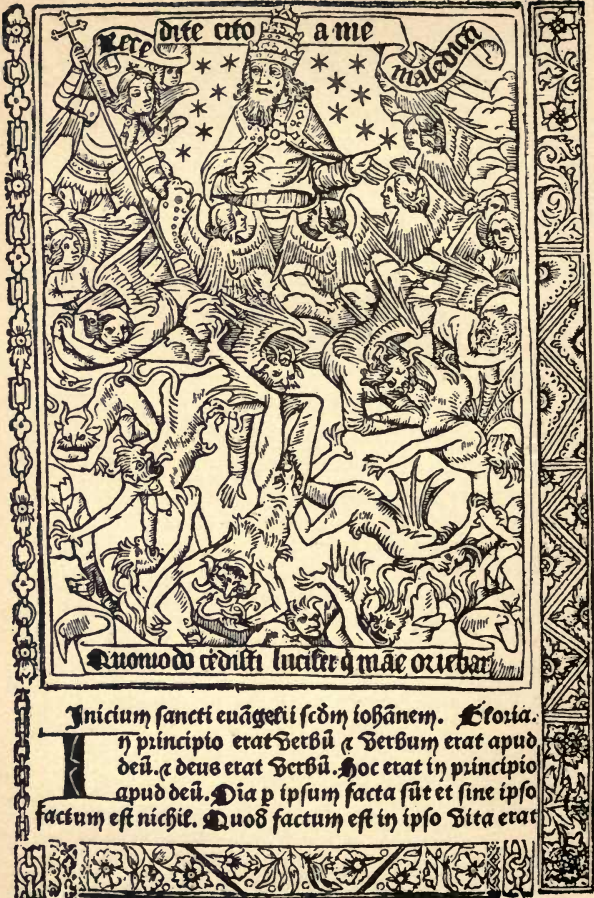 Recedite cito a me maledicti
Quomodo cēdisti lucifer q̄ māe oriebar
Inicium sancti euāgelii scd̄m iohānem. Gloria.
In principio erat verbū ⁊ verbum erat apud
deū. ⁊ deus erat verbū. Hoc erat in principio
apud deū. Oīa p ipsum facta sūt et sine ipso
factum est nichil. Quod factum est in ipso vita erat